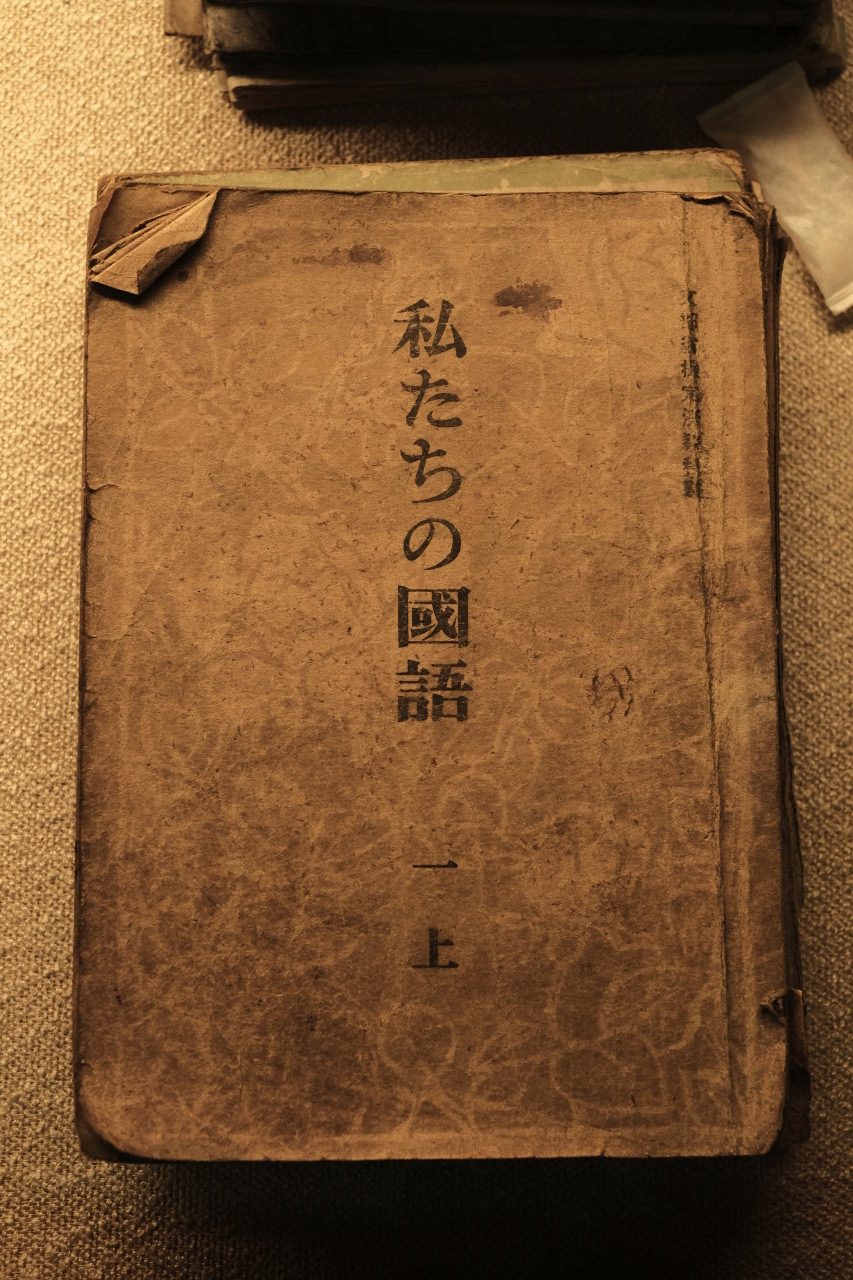 私たちの國語
一上